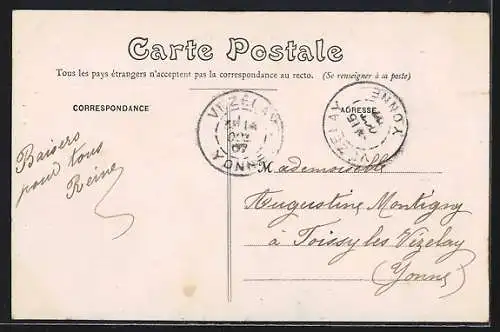 Carte Postale
Tous les pays étrangers n'acceptent pas la correspondance au recto. (Se renseigner à sa poste)
CORRESPONDANCE
ADRESSE
VEZELAY
YONNE
VEZELAY
YONNE
Baisers
pour tous
Reine
Mademoiselle
Augustine Montigny
à Foissy les Vizelay
(Yonne)